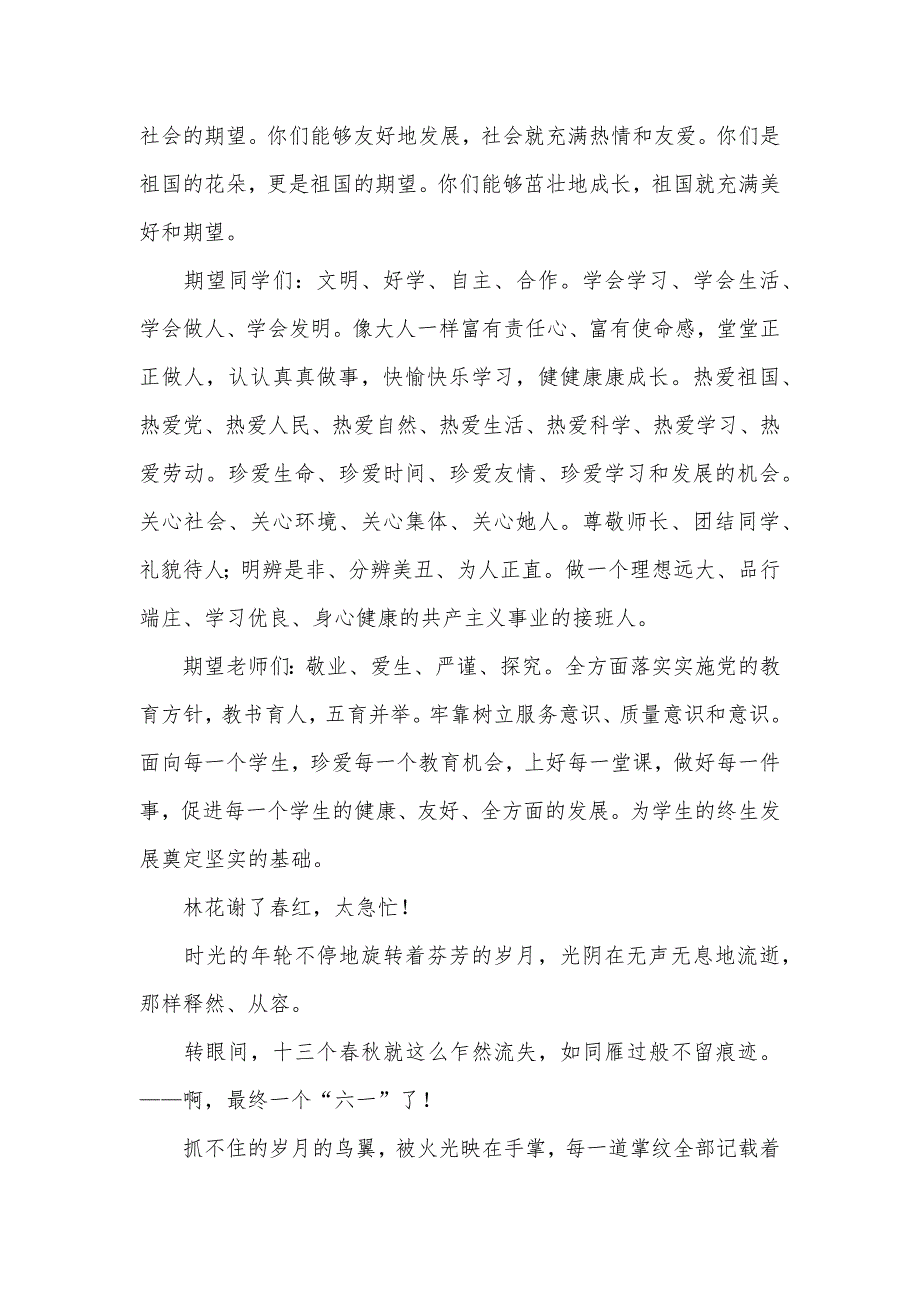 社会的期望。你们能够友好地发展，社会就充满热情和友爱。你们是
祖国的花朵，更是祖国的期望。你们能够茁壮地成长，祖国就充满美
好和期望。
期望同学们：文明、好学、自主、合作。学会学习、学会生活、
学会做人、学会发明。像大人一样富有责任心、富有使命感，堂堂正
正做人，认认真真做事，快愉快乐学习，健健康康成长。热爱祖国、
热爱党、热爱人民、热爱自然、热爱生活、热爱科学、热爱学习、热
爱劳动。珍爱生命、珍爱时间、珍爱友情、珍爱学习和发展的机会。
关心社会、关心环境、关心集体、关心她人。尊敬师长、团结同学、
礼貌待人；明辨是非、分辨美丑、为人正直。做一个理想远大、品行
端庄、学习优良、身心健康的共产主义事业的接班人。
期望老师们：敬业、爱生、严谨、探究。全方面落实实施党的教
育方针，教书育人，五育并举。牢靠树立服务意识、质量意识和意识。
面向每一个学生，珍爱每一个教育机会，上好每一堂课，做好每一件
事，促进每一个学生的健康、友好、全方面的发展。为学生的终生发
展奠定坚实的基础。
林花谢了春红，太急忙！
时光的年轮不停地旋转着芬芳的岁月，光阴在无声无息地流逝，
那样释然、从容。
转眼间，十三个春秋就这么乍然流失，如同雁过般不留痕迹。
——啊，最终一个“六一”了！
抓不住的岁月的鸟翼，被火光映在手掌，每一道掌纹全部记载着